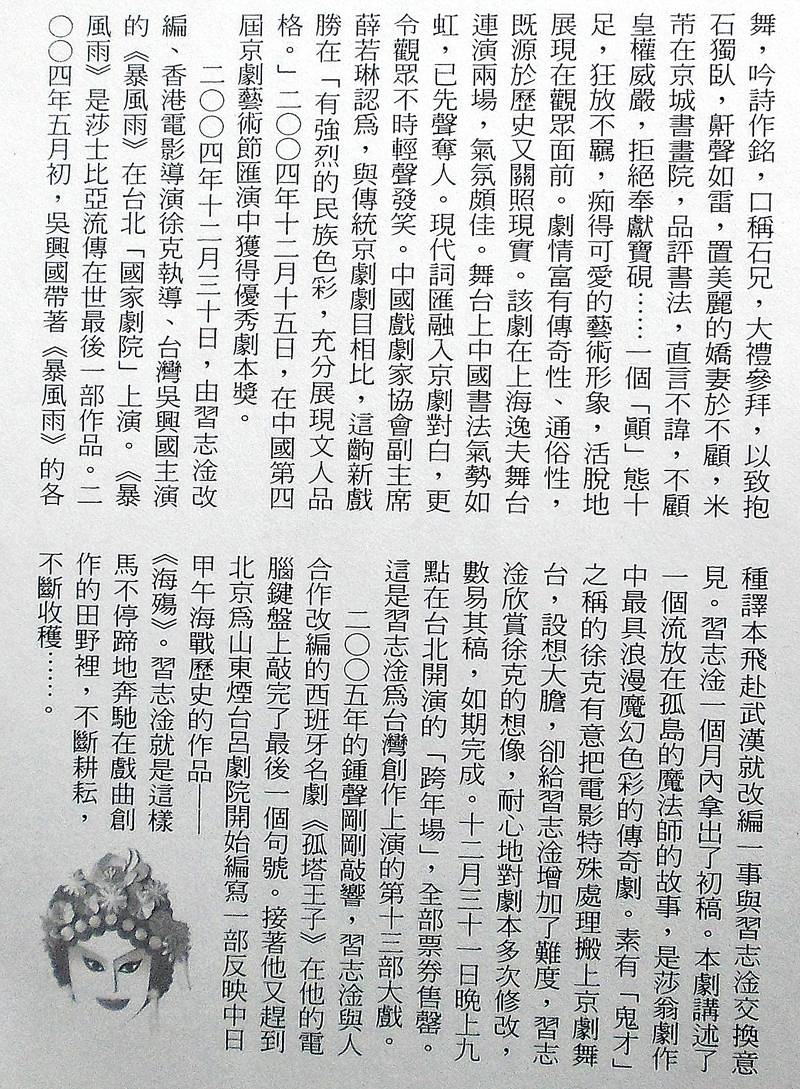 舞，吟詩作銘，口稱石兄，大禮參拜，以致抱
石獨臥，鼾聲如雷，置美麗的嬌妻於不顧，米
芾在京城書畫院，品評書法，直言不諱，不顧
皇權威嚴，拒絕奉獻寶硯……一個「顛」態十
足，狂放不羈，痴得可愛的藝術形象，活脫地
展現在觀眾面前。劇情富有傳奇性、通俗性，
既源於歷史又關照現實。該劇在上海逸夫舞台
連演兩場，氣氛頗佳。舞台上中國書法氣勢如
虹，已先聲奪人。現代詞匯融入京劇對白，更
令觀眾不時輕聲發笑。中國戲劇家協會副主席
薛若琳認為，與傳統京劇劇目相比，這齣新戲
勝在「有強烈的民族色彩，充分展現文人品
格。」二○○四年十二月十五日，在中國第四
屆京劇藝術節匯演中獲得優秀劇本獎。
二○○四年十二月三十日，由習志淦改
編、香港電影導演徐克執導、台灣吳興國主演
的《暴風雨》在台北「國家劇院」上演。《暴
風雨》是莎士比亞流傳在世最後一部作品。二
○○四年五月初，吳興國帶著《暴風雨》的各
種譯本飛赴武漢就改編一事與習志淦交換意
見。習志淦一個月內拿出了初稿。本劇講述了
一個流放在孤島的魔法師的故事，是莎翁劇作
中最具浪漫魔幻色彩的傳奇劇。素有「鬼才」
之稱的徐克有意把電影特殊處理搬上京劇舞
台，設想大膽，卻給習志淦增加了難度，習志
淦欣賞徐克的想像，耐心地對劇本多次修改，
數易其稿，如期完成。十二月三十一日晚上九
點在台北開演的「跨年場」，全部票券售罄。
這是習志淦為台灣創作上演的第十三部大戲。
二○○五年的鍾聲剛剛敲響，習志淦與人
合作改編的西班牙名劇《孤塔王子》在他的電
腦鍵盤上敲完了最後一個句號。接著他又趕到
北京為山東煙台呂劇院開始編寫一部反映中日
甲午海戰歷史的作品——
《海殤》。習志淦就是這樣
馬不停蹄地奔馳在戲曲創
作的田野裡，不斷耕耘，
不斷收穫……。